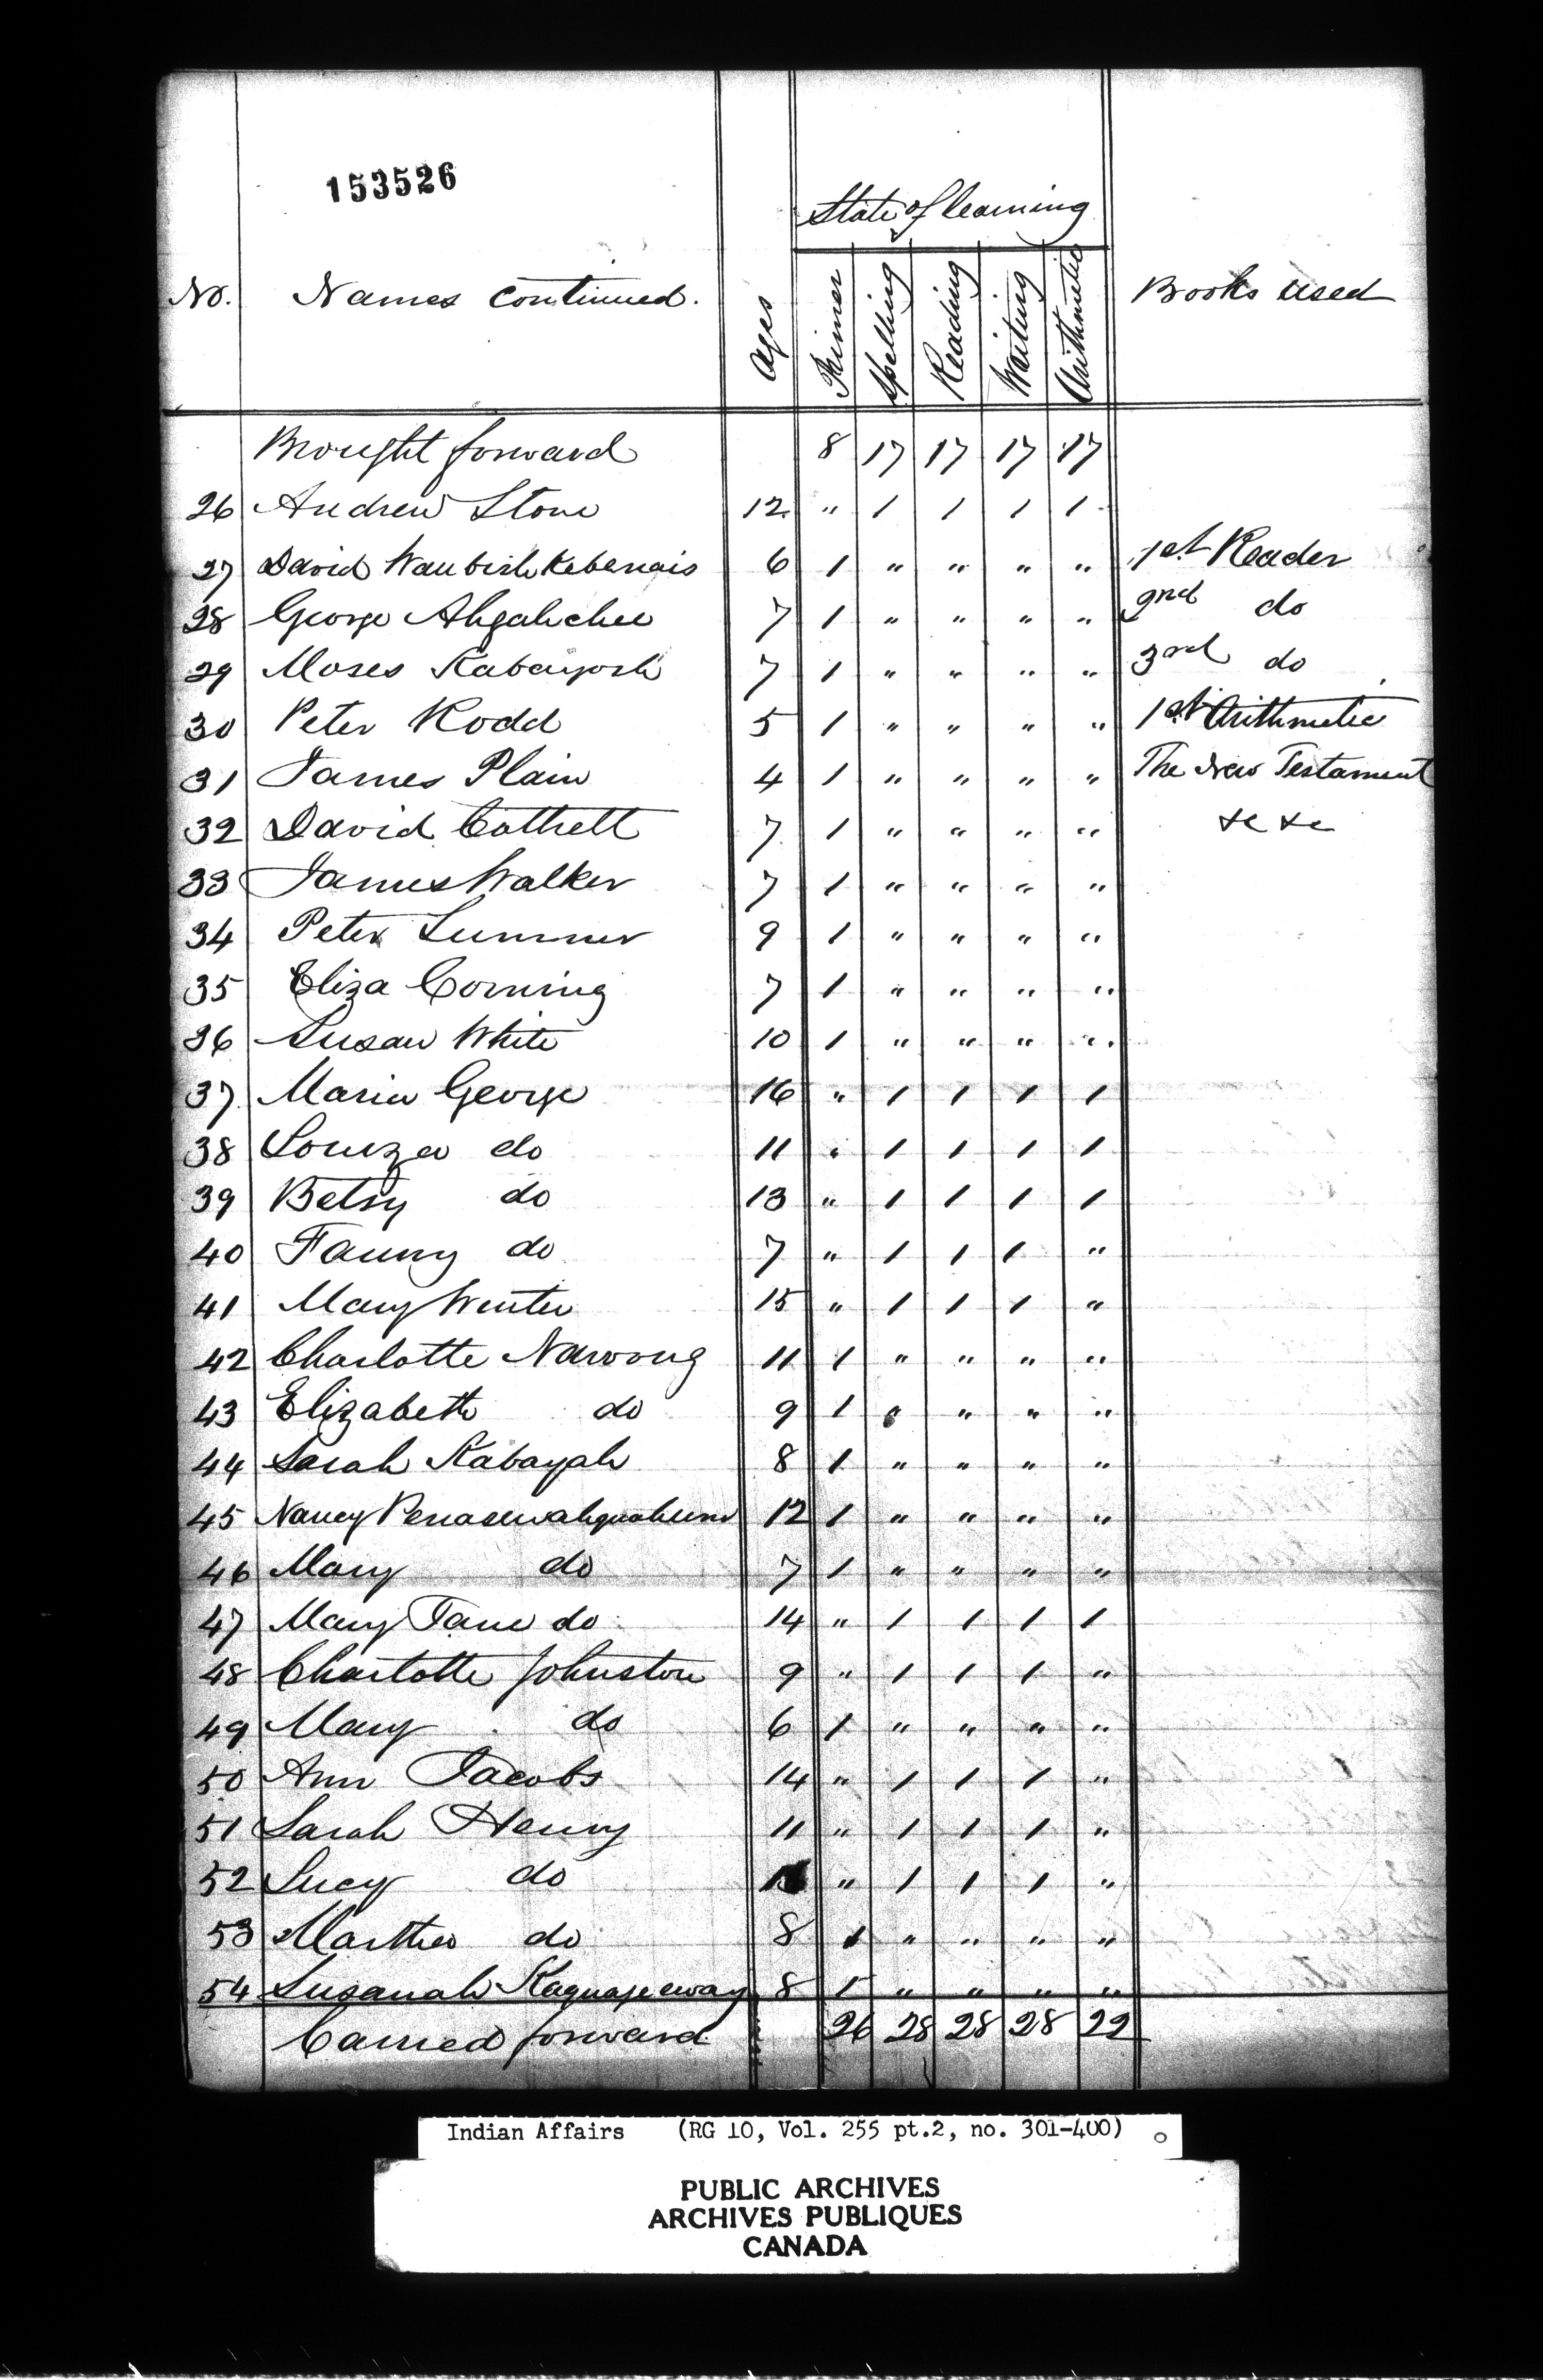 153526
State of learning
No. Names continued. Ages Primer Spelling Reading Writing Arithmetic Books used
Brought forward 8 17 17 17 17
26 Andrew Stone 12 " 1 1 1 1
27 David Waubishkebenais 6 1 " " " " 1st Reader
28 George Ahgahchee 7 1 " " " " 2nd do
29 Moses 7 1 " " " " 3rd do
30 Peter Rodd 5 1 " " " " 1st Arithmetic
31 James Plain 4 1 " " " " The New Testament
32 David Cottrell 7 1 " " " " &c &c
33 James Walker 7 1 " " " "
34 Peter Summer 9 1 " " " "
35 Eliza Corning 7 1 " " " "
36 Susan White 10 1 " " " "
37 Maria George 16 " 1 1 1 1
38 Louiza do 11 " 1 1 1 1
39 Betsy do 13 " 1 1 1 1
40 Fanny do 7 " 1 1 1 "
41 Mary Winter 15 " 1 1 1 "
42 Charlotte Nawong 11 1 " " " "
43 Elizabeth do 9 1 " " " "
44 Sarah Kabayah 8 1 " " " "
45 Nancy 12 1 " " " "
46 Mary do 7 1 " " " "
47 Mary Jane do 14 " 1 1 1 1
48 Charlotte Johnston 9 " 1 1 1 "
49 Mary do 6 1 " " " "
50 Ann Jacobs 14 " 1 1 1 "
51 Sarah Henry 11 " 1 1 1 "
52 Lucy do " 1 1 1 "
53 Martha do 8 1 " " " "
54 Susanah 8 1 " " " "
Carried forward 26 28 28 28 22
Indian Affairs (RG 10, Vol. 255 pt.2, no. 301-400)
PUBLIC ARCHIVES
ARCHIVES PUBLIQUES
CANADA